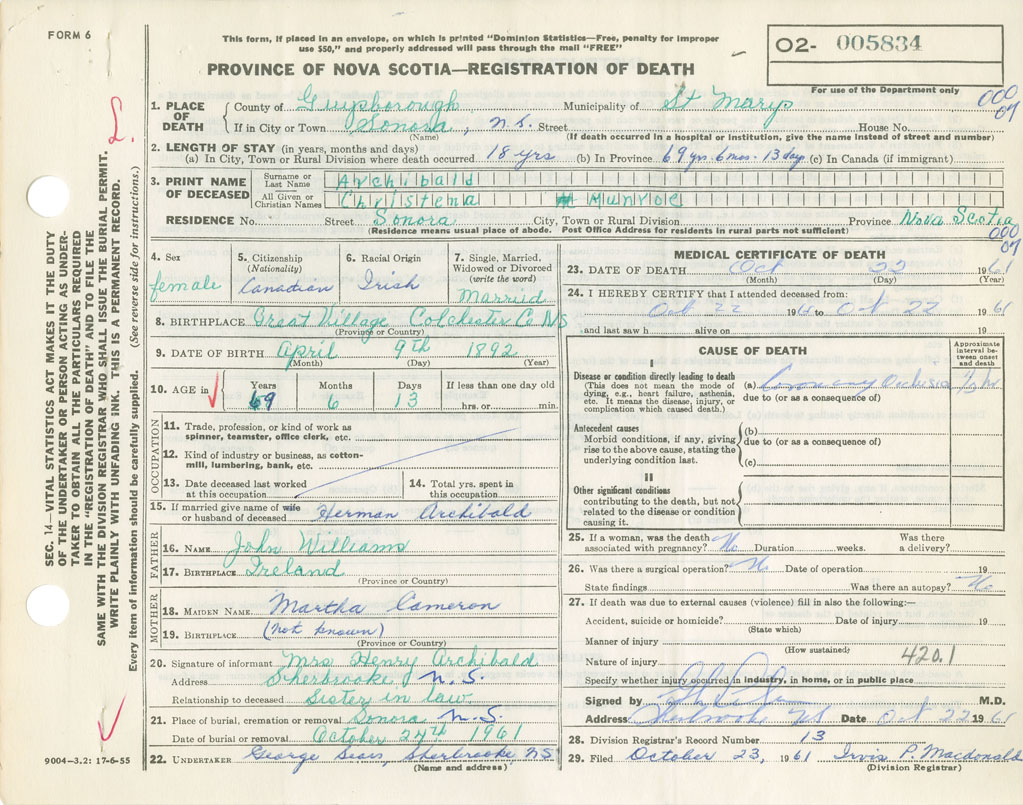 FORM 6
This form, if placed in an envelope, on which is printed "Dominion Statistics—Free, penalty for improper
use $50," and properly addressed will pass through the mail "FREE"
PROVINCE OF NOVA SCOTIA—REGISTRATION OF DEATH
02- 005834
For use of the Department only
000
07
SEC. 14—VITAL STATISTICS ACT MAKES IT THE DUTY
OF THE UNDERTAKER OR PERSON ACTING AS UNDER-
TAKER TO OBTAIN ALL THE PARTICULARS REQUIRED
IN THE "REGISTRATION OF DEATH" AND TO FILE THE
SAME WITH THE DIVISION REGISTRAR WHO SHALL ISSUE THE BURIAL PERMIT.
WRITE PLAINLY WITH UNFADING INK. THIS IS A PERMANENT RECORD.
Every item of information should be carefully supplied. (See reverse side for instructions.)
1. PLACE OF DEATH County of Guysborough Municipality of St Marys
If in City or Town Sonora, N.S. Street House No.
(Name) (If death occurred in a hospital or institution, give the name instead of street and number)
2. LENGTH OF STAY (in years, months and days)
(a) In City, Town or Rural Division where death occurred 18 yrs (b) In Province 69 yrs. 6 mos. 13 day (c) In Canada (if immigrant)
3. PRINT NAME OF DECEASED Surname or Last Name Archibald
All Given or Christian Names Christena Munroe
RESIDENCE No. Street Sonora City, Town or Rural Division Province Nova Scotia
(Residence means usual place of abode. Post Office Address for residents in rural parts not sufficient)
000
07
4. Sex 5. Citizenship (Nationality) 6. Racial Origin 7. Single, Married, Widowed or Divorced (write the word)
female Canadian Irish Married
8. BIRTHPLACE Great Village Colchester Co NS
(Province or Country)
9. DATE OF BIRTH April 9th 1892
(Month) (Day) (Year)
10. AGE in Years Months Days If less than one day old
69 6 13 hrs. or min.
OCCUPATION
11. Trade, profession, or kind of work as
spinner, teamster, office clerk, etc.
12. Kind of industry or business, as cotton-
mill, lumbering, bank, etc.
13. Date deceased last worked
at this occupation
14. Total yrs. spent in
this occupation
15. If married give name of wife
or husband of deceased Herman Archibald
FATHER
16. NAME John Williams
17. BIRTHPLACE Ireland
(Province or Country)
MOTHER
18. MAIDEN NAME Martha Cameron
19. BIRTHPLACE (not known)
(Province or Country)
20. Signature of informant Mrs Henry Archibald
Address Sherbrooke N.S.
Relationship to deceased Sister in law
21. Place of burial, cremation or removal Sonora N.S.
Date of burial or removal October 24th 1961
22. UNDERTAKER George Sears, Sherbrooke, N.S.
(Name and address)
9004—3.2: 17-6-55
MEDICAL CERTIFICATE OF DEATH
23. DATE OF DEATH Oct 22 1961
(Month) (Day) (Year)
24. I HEREBY CERTIFY that I attended deceased from:
Oct 22 1961 to Oct 22 1961
and last saw h alive on 19
CAUSE OF DEATH
Approximate interval between onset and death
I
Disease or condition directly leading to death
(This does not mean the mode of
dying, e.g., heart failure, asthenia,
etc. It means the disease, injury, or
complication which caused death.)
(a) Coronary Occlusion
due to (or as a consequence of)
Antecedent causes
Morbid conditions, if any, giving
rise to the above cause, stating the
underlying condition last.
(b)
due to (or as a consequence of)
(c)
II
Other significant conditions
contributing to the death, but not
related to the disease or condition
causing it.
25. If a woman, was the death
associated with pregnancy? No Duration weeks. Was there
a delivery?
26. Was there a surgical operation? No Date of operation 19
State findings Was there an autopsy? No
27. If death was due to external causes (violence) fill in also the following:—
Accident, suicide or homicide? Date of injury 19
(State which)
Manner of injury
(How sustained)
Nature of injury 420.1
Specify whether injury occurred in industry, in home, or in public place
Signed by M.D.
Address Sherbrooke NS Date Oct 22 1961
28. Division Registrar's Record Number 13
29. Filed October 23, 1961 Irvin P. Macdonald
(Division Registrar)